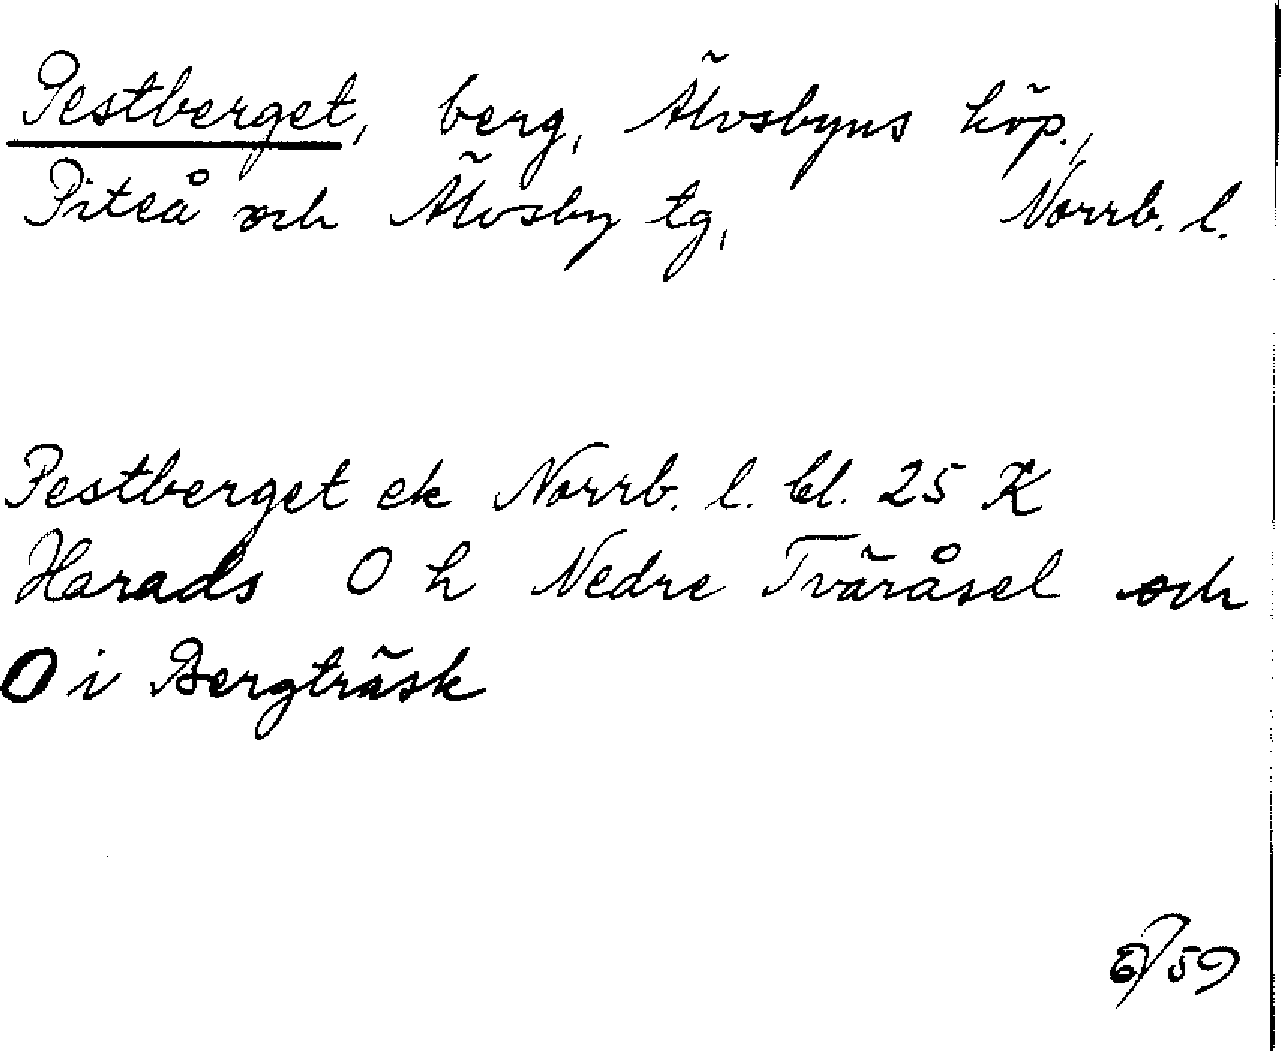 Pestberget, berg, Älvsbyns köp.,
Piteå och Älvsby tg, Norrb. l.
Pestberget ek Norrb. l. bl. 25 K
Harads O h Nedre Tväråsel och
O i Bergträsk
6/59